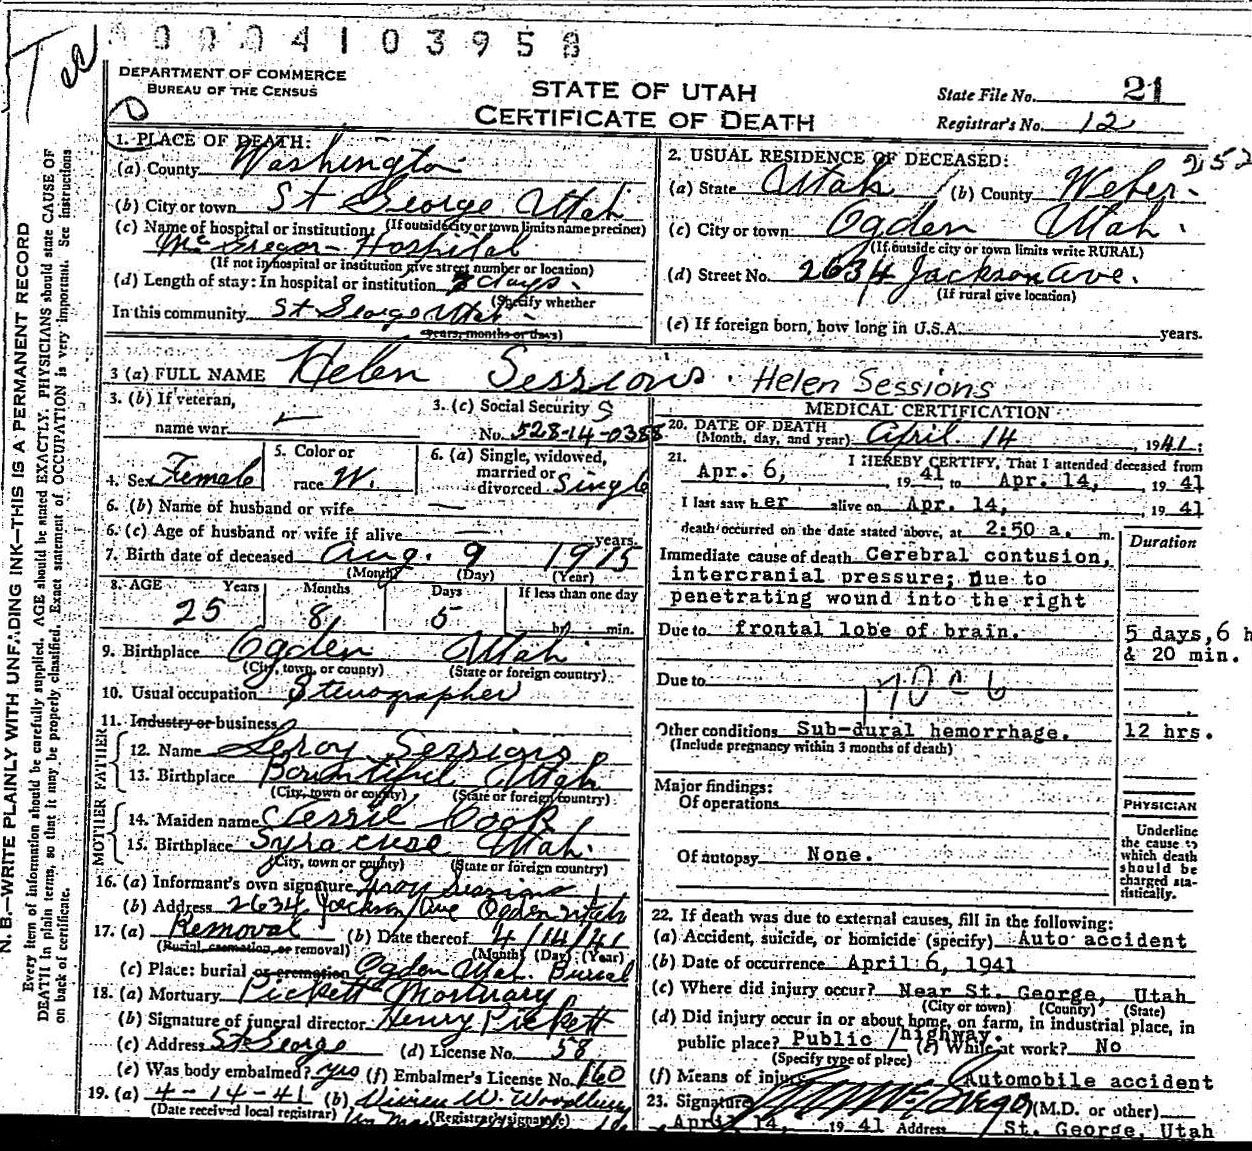 0004103958
Tee
DEPARTMENT OF COMMERCE
BUREAU OF THE CENSUS
STATE OF UTAH
CERTIFICATE OF DEATH
State File No. 21
Registrar's No. 12
1. PLACE OF DEATH:
(a) County Washington
(b) City or town St George Utah
(If outside city or town limits name precinct)
(c) Name of hospital or institution:
McGregor Hospital
(If not in hospital or institution give street number or location)
(d) Length of stay: In hospital or institution days.
(Specify whether
In this community St George Utah
years, months or days)
2. USUAL RESIDENCE OF DECEASED: 252
(a) State Utah (b) County Weber
(c) City or town Ogden Utah.
(If outside city or town limits write RURAL)
(d) Street No. 2634 Jackson Ave.
(If rural give location)
(e) If foreign born, how long in U.S.A. years.
3 (a) FULL NAME Helen Sessions. Helen Sessions
3. (b) If veteran,
name war
3. (c) Social Security
No. 528-14-0388
4. Sex Female
5. Color or
race W.
6. (a) Single, widowed,
married or
divorced Single
6. (b) Name of husband or wife
6. (c) Age of husband or wife if alive years.
7. Birth date of deceased Aug. 9 1915
(Month) (Day) (Year)
8. AGE Years Months Days If less than one day
25 8 5 hr. min.
9. Birthplace Ogden Utah
(City, town, or county) (State or foreign country)
10. Usual occupation Stenographer
11. Industry or business
FATHER
12. Name Leroy Sessions
13. Birthplace Bountiful Utah
(City, town or county) (State or foreign country)
MOTHER
14. Maiden name Cook
15. Birthplace Syracuse Utah.
(City, town or county) (State or foreign country)
16. (a) Informant's own signature Leroy Sessions
(b) Address 2634 Jackson Ave Ogden Utah
17. (a) Removal (b) Date thereof 4/14/41
(Burial, cremation, or removal) (Month) (Day) (Year)
(c) Place: burial or cremation Ogden Utah. Burial
18. (a) Mortuary Pickett Mortuary
(b) Signature of funeral director Henry Pickett
(c) Address St George (d) License No. 58
(e) Was body embalmed? yes (f) Embalmer's License No. 160
19. (a) 4-14-41 (b) W. Woodbury
(Date received local registrar) (Registrar's signature)
MEDICAL CERTIFICATION
20. DATE OF DEATH
(Month, day, and year) April 14, 1941:
21. I HEREBY CERTIFY, That I attended deceased from
Apr. 6, 1941 to Apr. 14, 1941
I last saw her alive on Apr. 14, 1941
death occurred on the date stated above, at 2:50 a. m.
Duration
Immediate cause of death Cerebral contusion,
intercranial pressure; Due to
penetrating wound into the right
Due to frontal lobe of brain. 5 days, 6 h
& 20 min.
Due to
Other conditions Sub-dural hemorrhage. 12 hrs.
(Include pregnancy within 3 months of death)
Major findings:
Of operations
Of autopsy None.
PHYSICIAN
Underline
the cause to
which death
should be
charged sta-
tistically.
22. If death was due to external causes, fill in the following:
(a) Accident, suicide, or homicide (specify) Auto accident
(b) Date of occurrence April 6, 1941
(c) Where did injury occur? Near St. George, Utah
(City or town) (County) (State)
(d) Did injury occur in or about home, on farm, in industrial place, in
public place? Public /highway. (e) While at work? No
(Specify type of place)
(f) Means of injury Automobile accident
23. Signature McGregor (M.D. or other)
April 14, 1941 Address St. George, Utah
N. B.—WRITE PLAINLY WITH UNFADING INK—THIS IS A PERMANENT RECORD
Every item of information should be carefully supplied. AGE should be stated EXACTLY. PHYSICIANS should state CAUSE OF
DEATH in plain terms, so that it may be properly classified. Exact statement of OCCUPATION is very important. See instructions
on back of certificate.